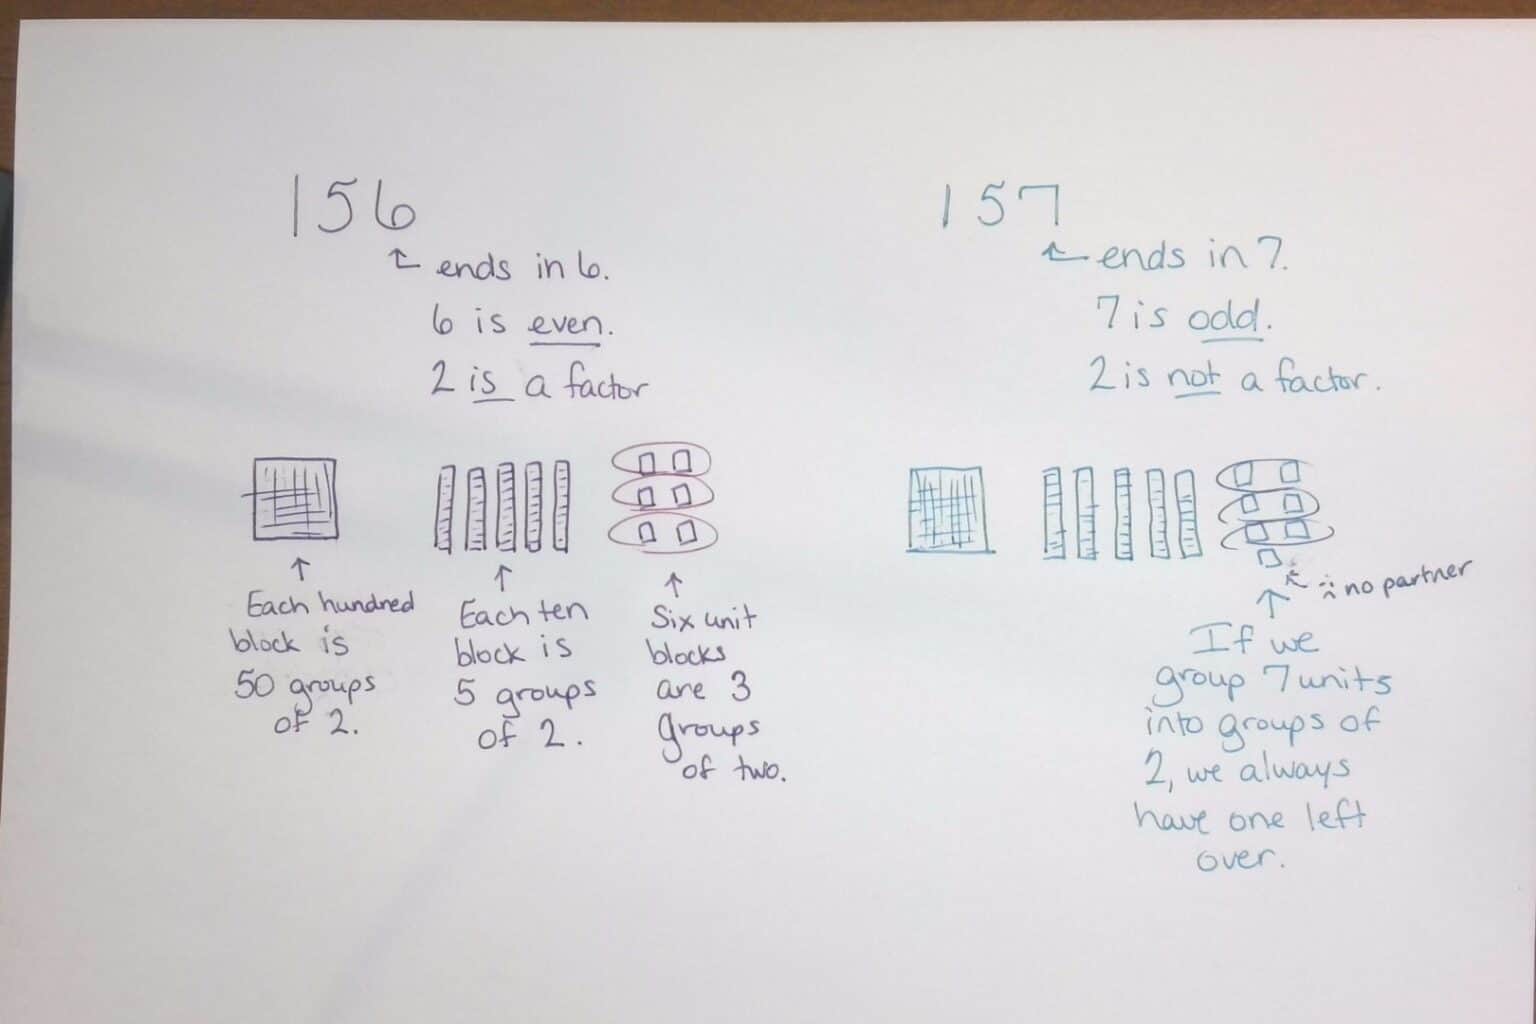 156
ends in 6.
6 is even.
2 is a factor
Each hundred
block is
50 groups
of 2.
Each ten
block is
5 groups
of 2.
Six unit
blocks
are 3
groups
of two.
157
ends in 7.
7 is odd.
2 is not a factor.
no partner
If we
group 7 units
into groups of
2, we always
have one left
over.